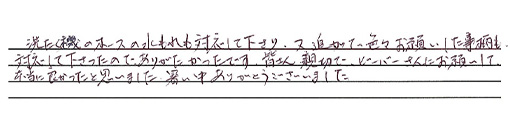 洗たく機のホースの水もれも対応して下さり、又追加で色々お願いした事柄も、
対応して下さったのでありがたかったです。皆さん親切で、ビーバーさんにお願いして、
本当に良かったと思いました。暑い中ありがとうございました。